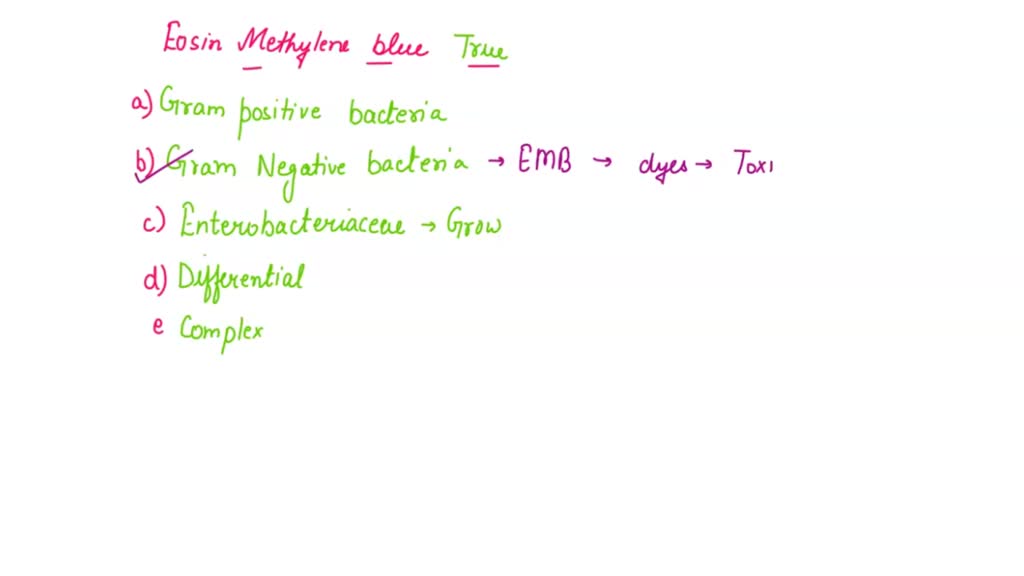 Eosin Methylene blue True
a) Gram positive bacteria
b) Gram Negative bacteria → EMB → dyes → Toxi
c) Enterobacteriaceae → Grow
d) Differential
e Complex